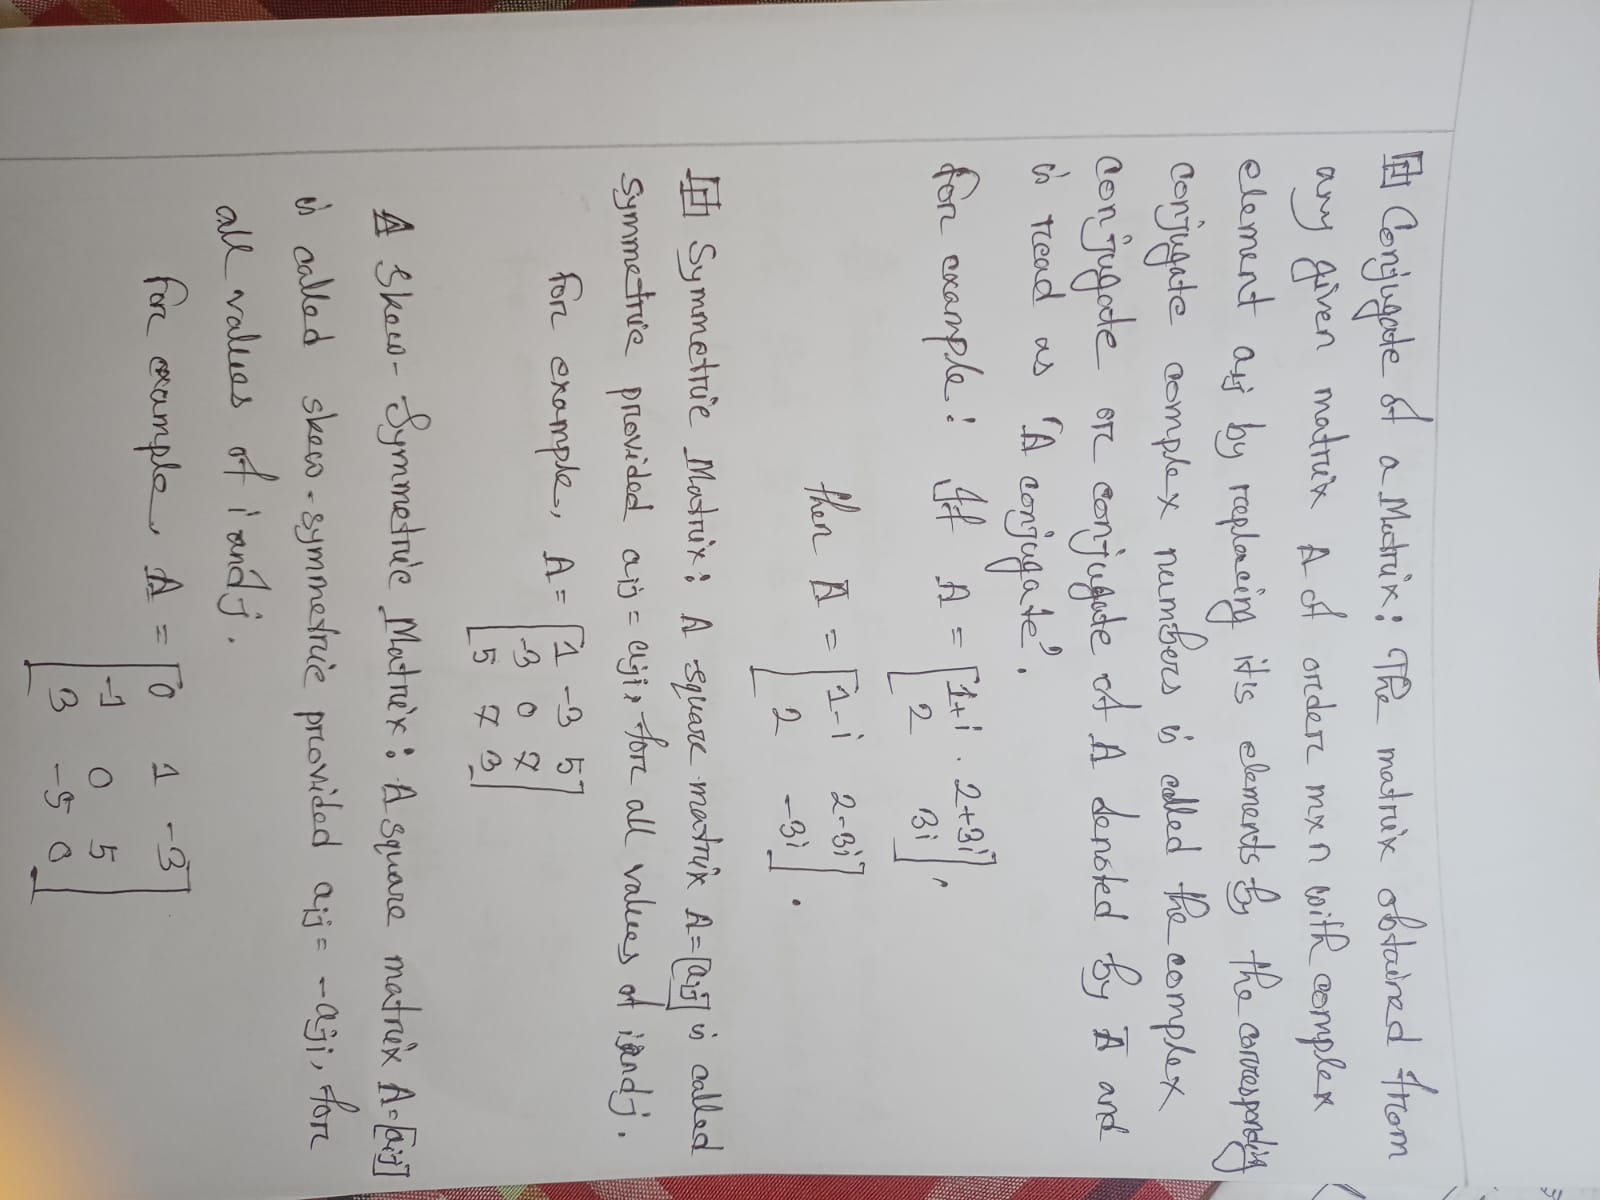 Conjugate of a Matrix: The matrix obtained from
any given matrix A of order m×n with complex
element aij by replacing it's elements by the corresponding
conjugate complex numbers is called the complex
conjugate or conjugate of A denoted by Ā and
is read as 'A conjugate'.
for example: If A = [1+i . 2+3i
2 3i],
then Ā = [1-i 2-3i
2 -3i].
Symmetric Matrix: A square matrix A=[aij] is called
symmetric provided aij = aji, for all values of i and j.
for example, A = [1 -3 5
-3 0 7
5 7 3]
A Skew-Symmetric Matrix: A square matrix A=[aij]
is called skew-symmetric provided aij = -aji, for
all values of i and j.
for example, A = [0 1 -3
-1 0 5
3 -5 0]